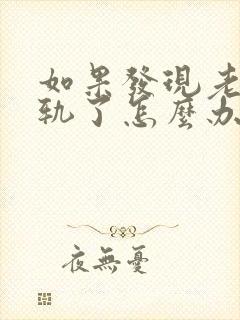 如果發現老
軌了怎麼办
夜無憂